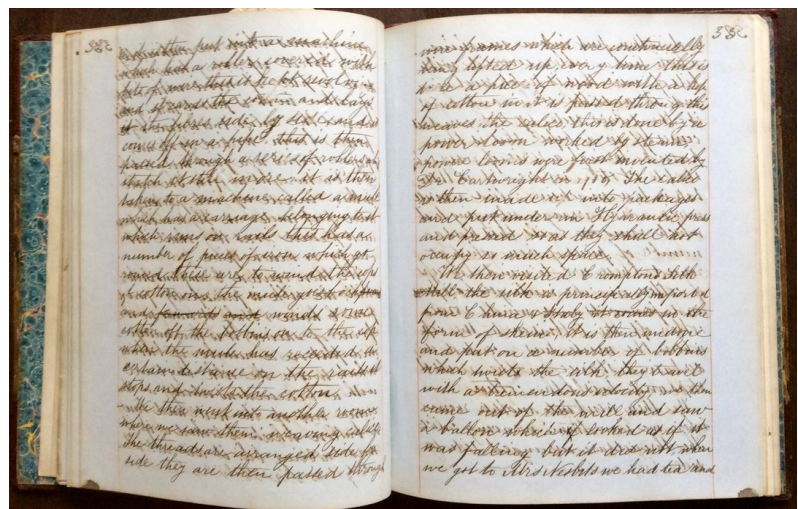 and is then put into a machine
which has a roller covered with
bits of wire this is kept revolving
and it cards the cotton and lays
it the fibres side by side and it
comes off in a pipe this is then
passed through a series of rollers and
stretch it still more it is then
taken to a machine called a mule
which has a carriage belonging to it
which runs on rails this has a
number of pieces of iron which go
round these are to wind the cops
of cotton on the mule
and winds some
cotton off the bobbins on to the cop
when the mule has receded a
certain distance on the rails it
stops and twists the cotton
We then went into another room
where we saw them weaving calico
The threads are arranged side by
side they are then passed through
wire frames which are continually
being lifted up every time this is
done a piece of wood with a cop
of cotton in it is passed through this
weaves the calico this is done by a
power loom worked by steam
power looms were first invented by
Dr Cartwright in The calico
is then made up into packages
and put under an Hydraulic press
and pressed so as they shall not
occupy so much space
We then visited Cromptons Silk
Mill the silk is principally imported
from China it comes in the
form of skeins It is then
and put on a number of bobbins
which twists the silk they travel
with a tremendous velocity we then
came out of the mill and saw
a balloon which looked as if it
was falling but it did not when
we got to Mrs Nesbits we had tea and